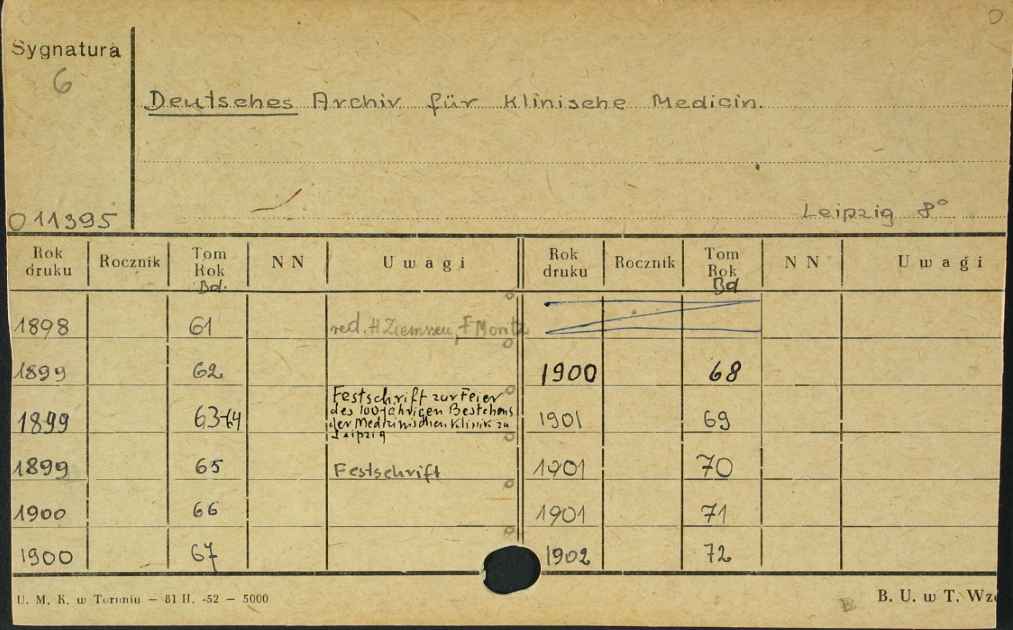 Sygnatura
6
Deutsches Archiv für Klinische Medicin.
011395
Leipzig 8°
Rok druku Rocznik Tom Rok Bd. NN Uwagi Rok druku Rocznik Tom Rok Bd NN Uwagi
1898 61 red. H Ziemssen, F Moritz
1899 62 1900 68
1899 63-64 Festschrift zur Feier
des 100-jährigen Bestehens
der Medizinischen Klinik zu
Leipzig
1901 69
1899 65 Festschrift 1901 70
1900 66 1901 71
1900 67 1902 72
U. M. K. w Toruniu — 81 H. -52 — 5000
B. U. w T.